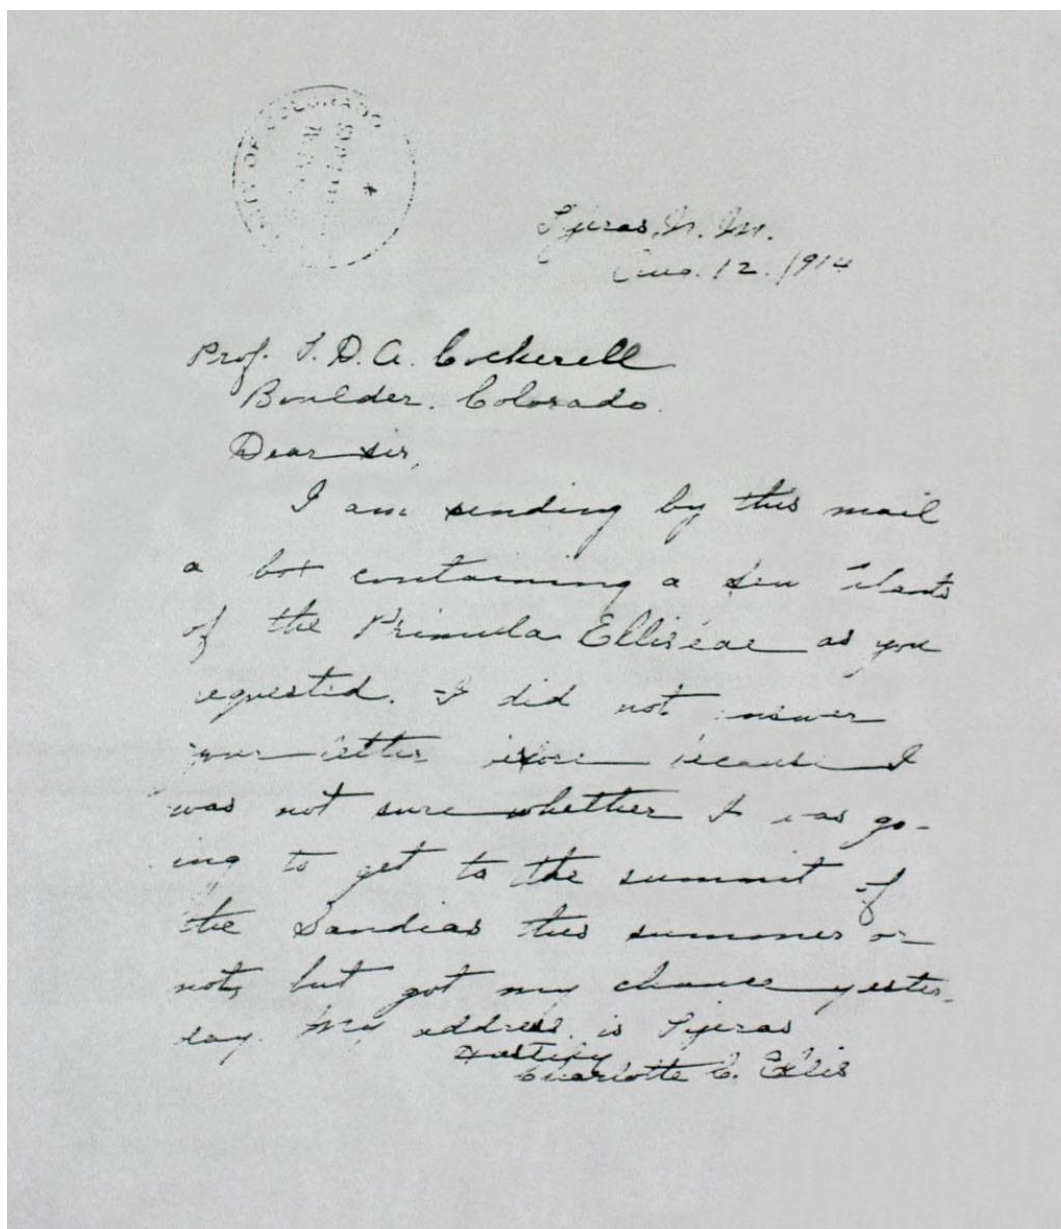 Tijeras, N. M.
Aug. 12. 1914
Prof. T. D. A. Cockerell
Boulder. Colorado.
Dear Sir,
I am sending by this mail
a box containing a few plants
of the Primula Elliseae as you
requested. I did not answer
your letter before because I
was not sure whether I was go-
ing to get to the summit of
the Sandias this summer or
not, but got my chance yester-
day. My address is Tijeras
Hastily
Charlotte C. Ellis